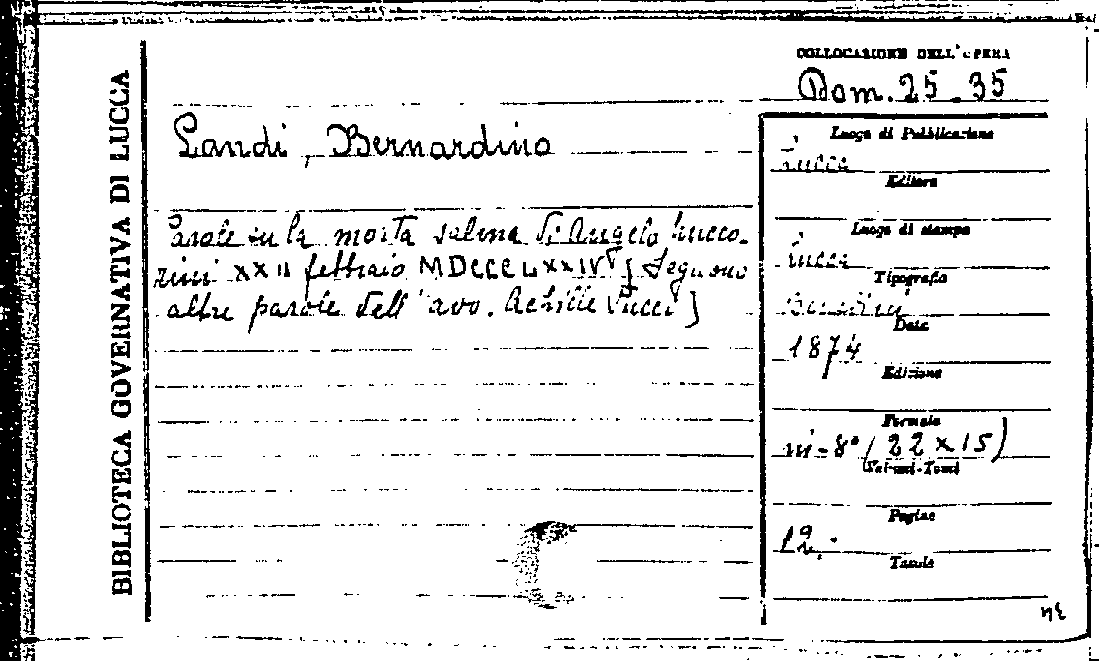 BIBLIOTECA GOVERNATIVA DI LUCCA
COLLOCAZIONE DELL'OPERA
Dom. 25.35
Landi, Bernardino
Parole su la morta salma di Angelo
XXII febbraio MDCCCLXXIV [Seguono
altre parole dell'avv. Achille Pucci]
Luogo di Pubblicazione
Lucca
Editore
Luogo di stampa
Lucca
Tipografia
Data
1874
Edizione
Formato
in-8° (22 x 15)
Volumi-Tomi
Pagine
12.
Tavole